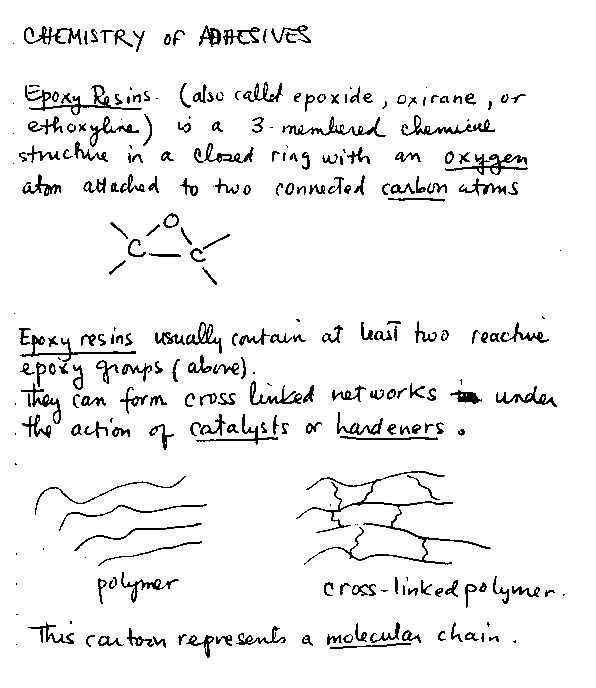 CHEMISTRY OF ADHESIVES
Epoxy Resins. (also called epoxide, oxirane, or
ethoxyline) is a 3-membered chemical
structure in a closed ring with an oxygen
atom attached to two connected carbon atoms
O
C C
Epoxy resins usually contain at least two reactive
epoxy groups (above).
They can form cross linked networks under
the action of catalysts or hardeners.
polymer cross-linked polymer.
This cartoon represents a molecular chain.